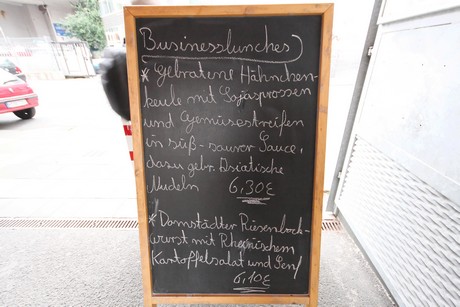 Businesslunches
* Gebratene Hähnchen-
keule mit Sojasprossen
und Gemüsestreifen
in süß-saurer Sauce,
dazu gebr. Asiatische
Nudeln 6,30€
* Damstädter Riesenbock-
wurst mit Rheinischem
Kartoffelsalat und Senf
6,10€